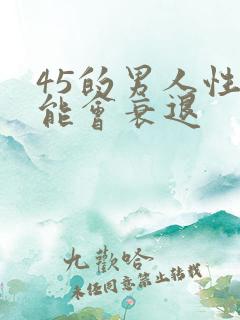 45的男人性
能會衰退
九歡哈
未任同意禁止转载